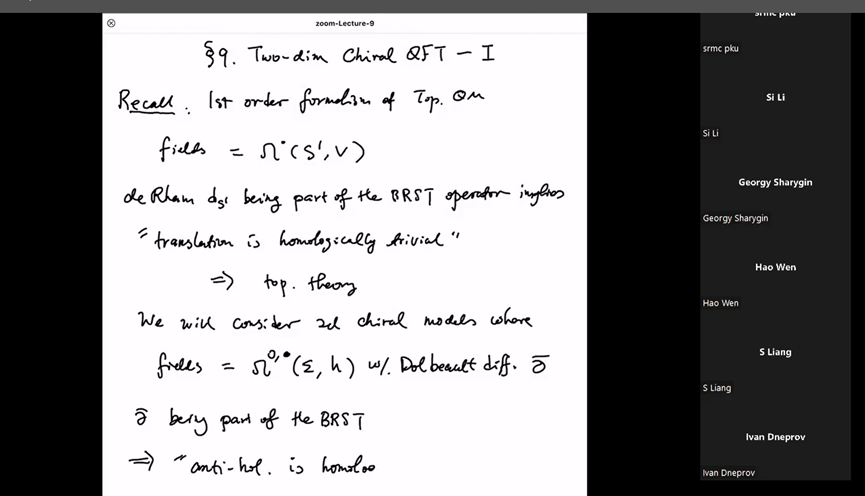 zoom-Lecture-9
§9. Two-dim Chiral QFT - I
Recall: 1st order formalism of Top. QM
fields = Ω^•(S¹, V)
de Rham d_{S¹} being part of the BRST operator implies
"translation is homologically trivial"
⇒ top. theory
We will consider 2d chiral models where
fields = Ω^{0,•}(Σ, h) w/. Dolbeault diff. ∂̄
∂̄ being part of the BRST
⇒ "anti-hol. is homolo
srmc pku
srmc pku
Si Li
Si Li
Georgy Sharygin
Georgy Sharygin
Hao Wen
Hao Wen
S Liang
S Liang
Ivan Dneprov
Ivan Dneprov